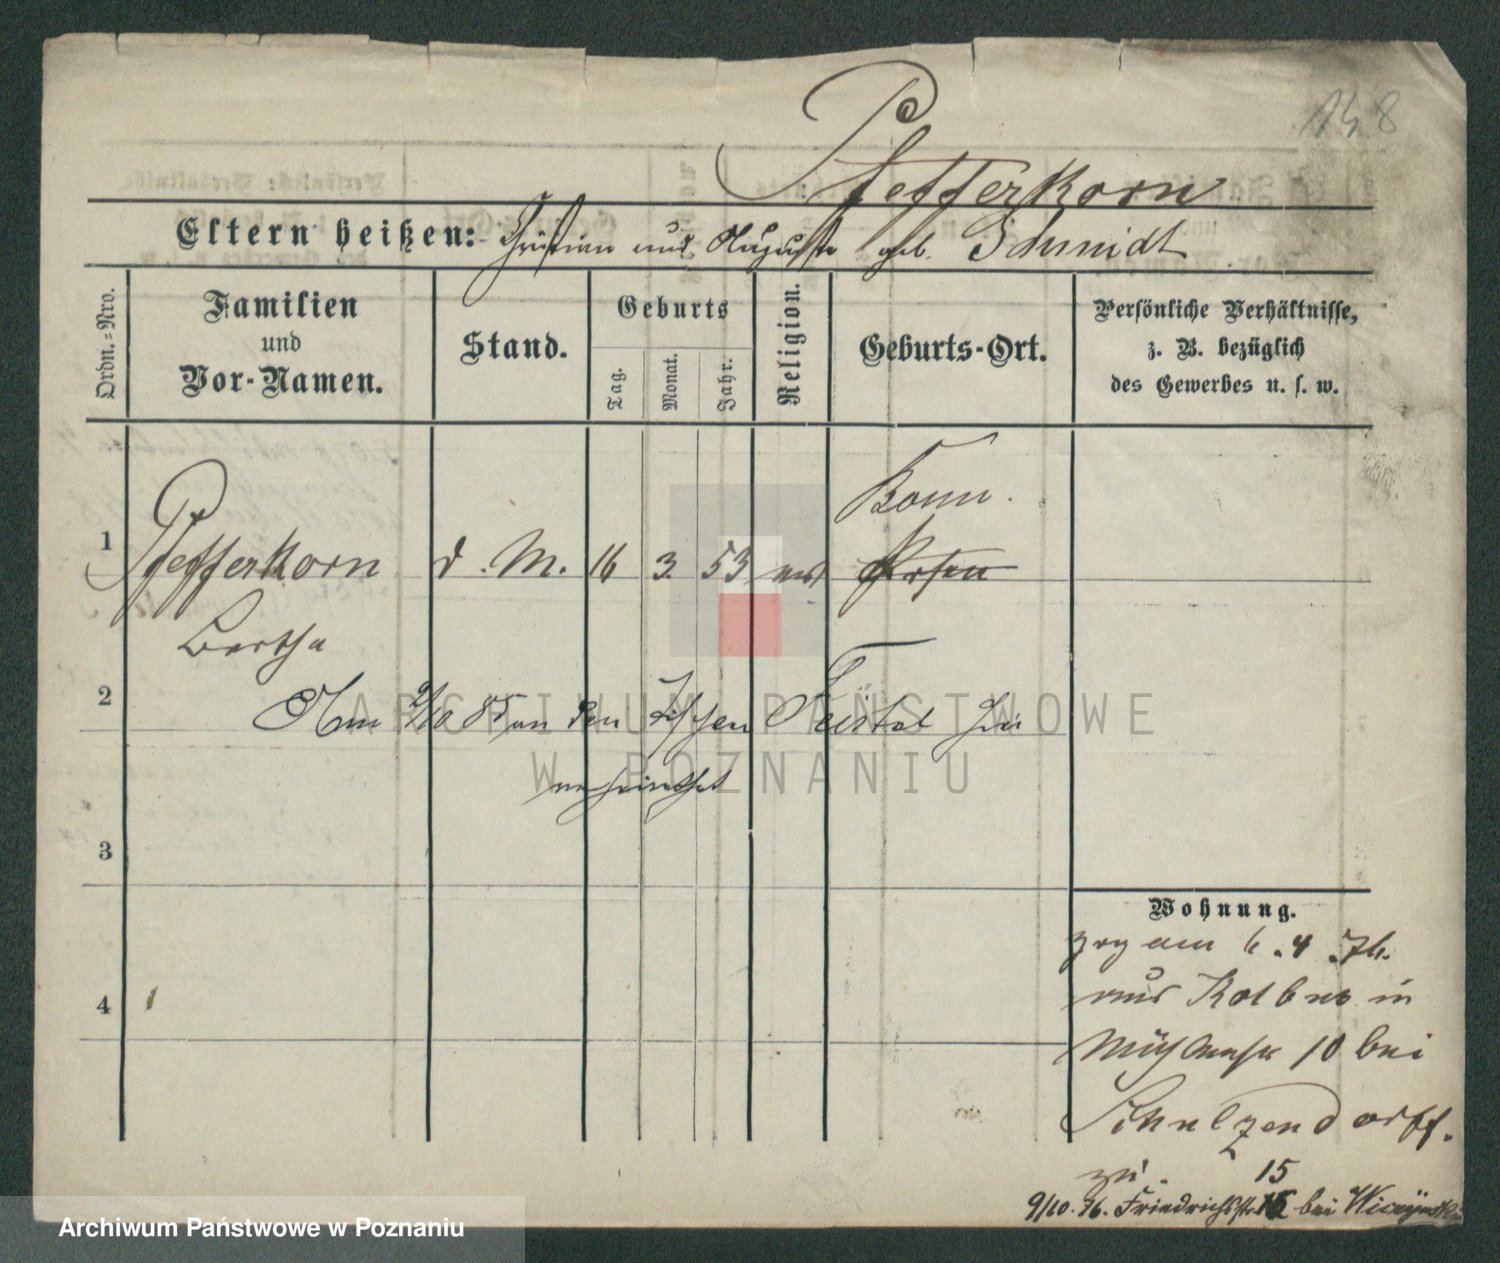 148
Pfefferkorn
Eltern heißen: Christian und Auguste geb. Schmidt
Ordn.-Nro.
Familien
und
Vor-Namen.
Stand.
Geburts
Tag.
Monat.
Jahr.
Religion.
Geburts-Ort.
Persönliche Verhältnisse,
z. B. bezüglich
des Gewerbes u. s. w.
Bomm.
1 Pfefferkorn d. M. 16 3. 53 ev
Bertha
2 Am 9/10 85 an den
verheirathet
3
4
Wohnung.
zog am 6. 4. 76.
aus Kotbus in
Mühlenstr 10 bei
Schulzendorff.
zu.
15
9/10. 76. Friedrichsstr. bei
ARCHIWUM PAŃSTWOWE
W POZNANIU
Archiwum Państwowe w Poznaniu